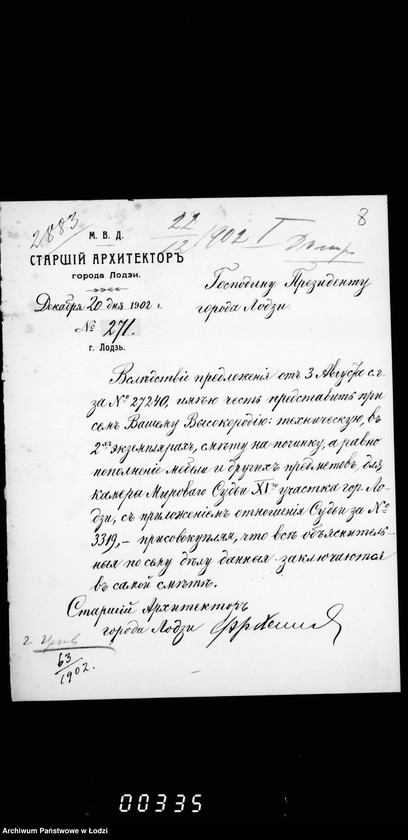 2883
22/12 1902 I
8
М. В. Д.
СТАРШІЙ АРХИТЕКТОРЪ
города Лодзи.
Декабря 20 дня 1902 г.
№ 271.
г. Лодзь.
Господину Президенту
города Лодзи.
Вслѣдствіе предложенія отъ 3 Августа с.г.
за № 27240, имѣю честь представить при
семъ Вашему Высокородію: техническую, въ
2хъ экземплярахъ, смѣту на починку, а равно
пополненіе мебели и другихъ предметовъ, для
камеры Мироваго Судьи XI го участка гор. Ло-
дзи, съ приложеніемъ отношенія Судьи за №
3319, – присовокупляя, что всѣ объяснитель-
ныя по сему дѣлу данныя заключаются
въ самой смѣтѣ.
Старшій Архитекторъ
города Лодзи
63/1902.
00335
Archiwum Państwowe w Łodzi